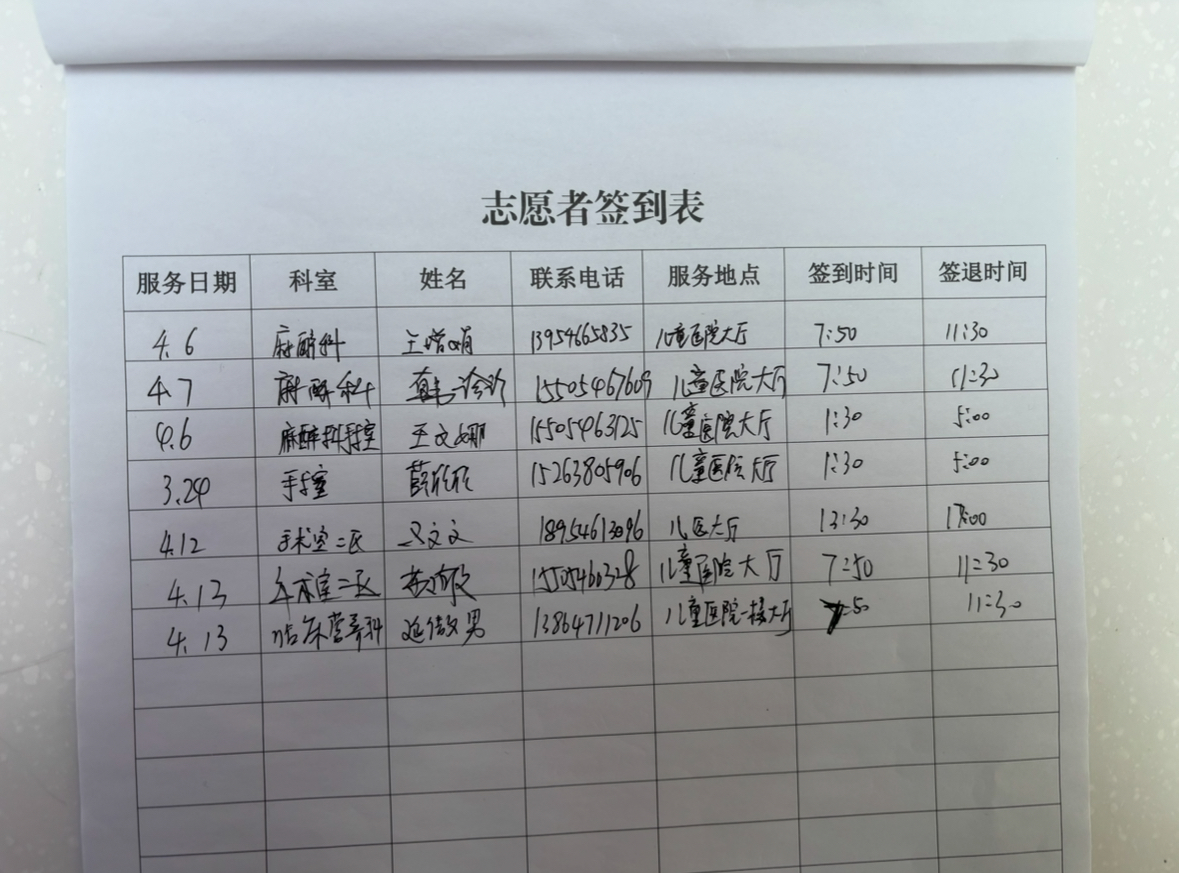 志愿者签到表
服务日期 科室 姓名 联系电话 服务地点 签到时间 签退时间
4.6 麻醉科 13954665835 儿童医院大厅 7:50 11:30
4.7 麻醉科 15505467609 儿童医院大厅 7:50 11:30
4.6 麻醉科手术室 王文娜 15505463125 儿童医院大厅 1:30 5:00
3.24 手术室 薛欣欣 15263805906 儿童医院大厅 1:30 5:00
4.12 手术室二区 文文 18954613096 儿医大厅 13:30 17:00
4.13 手术室二区 15505460328 儿童医院大厅 7:50 11:30
4.13 临床营养科 男 13864711206 儿童医院一楼大厅 7:50 11:30